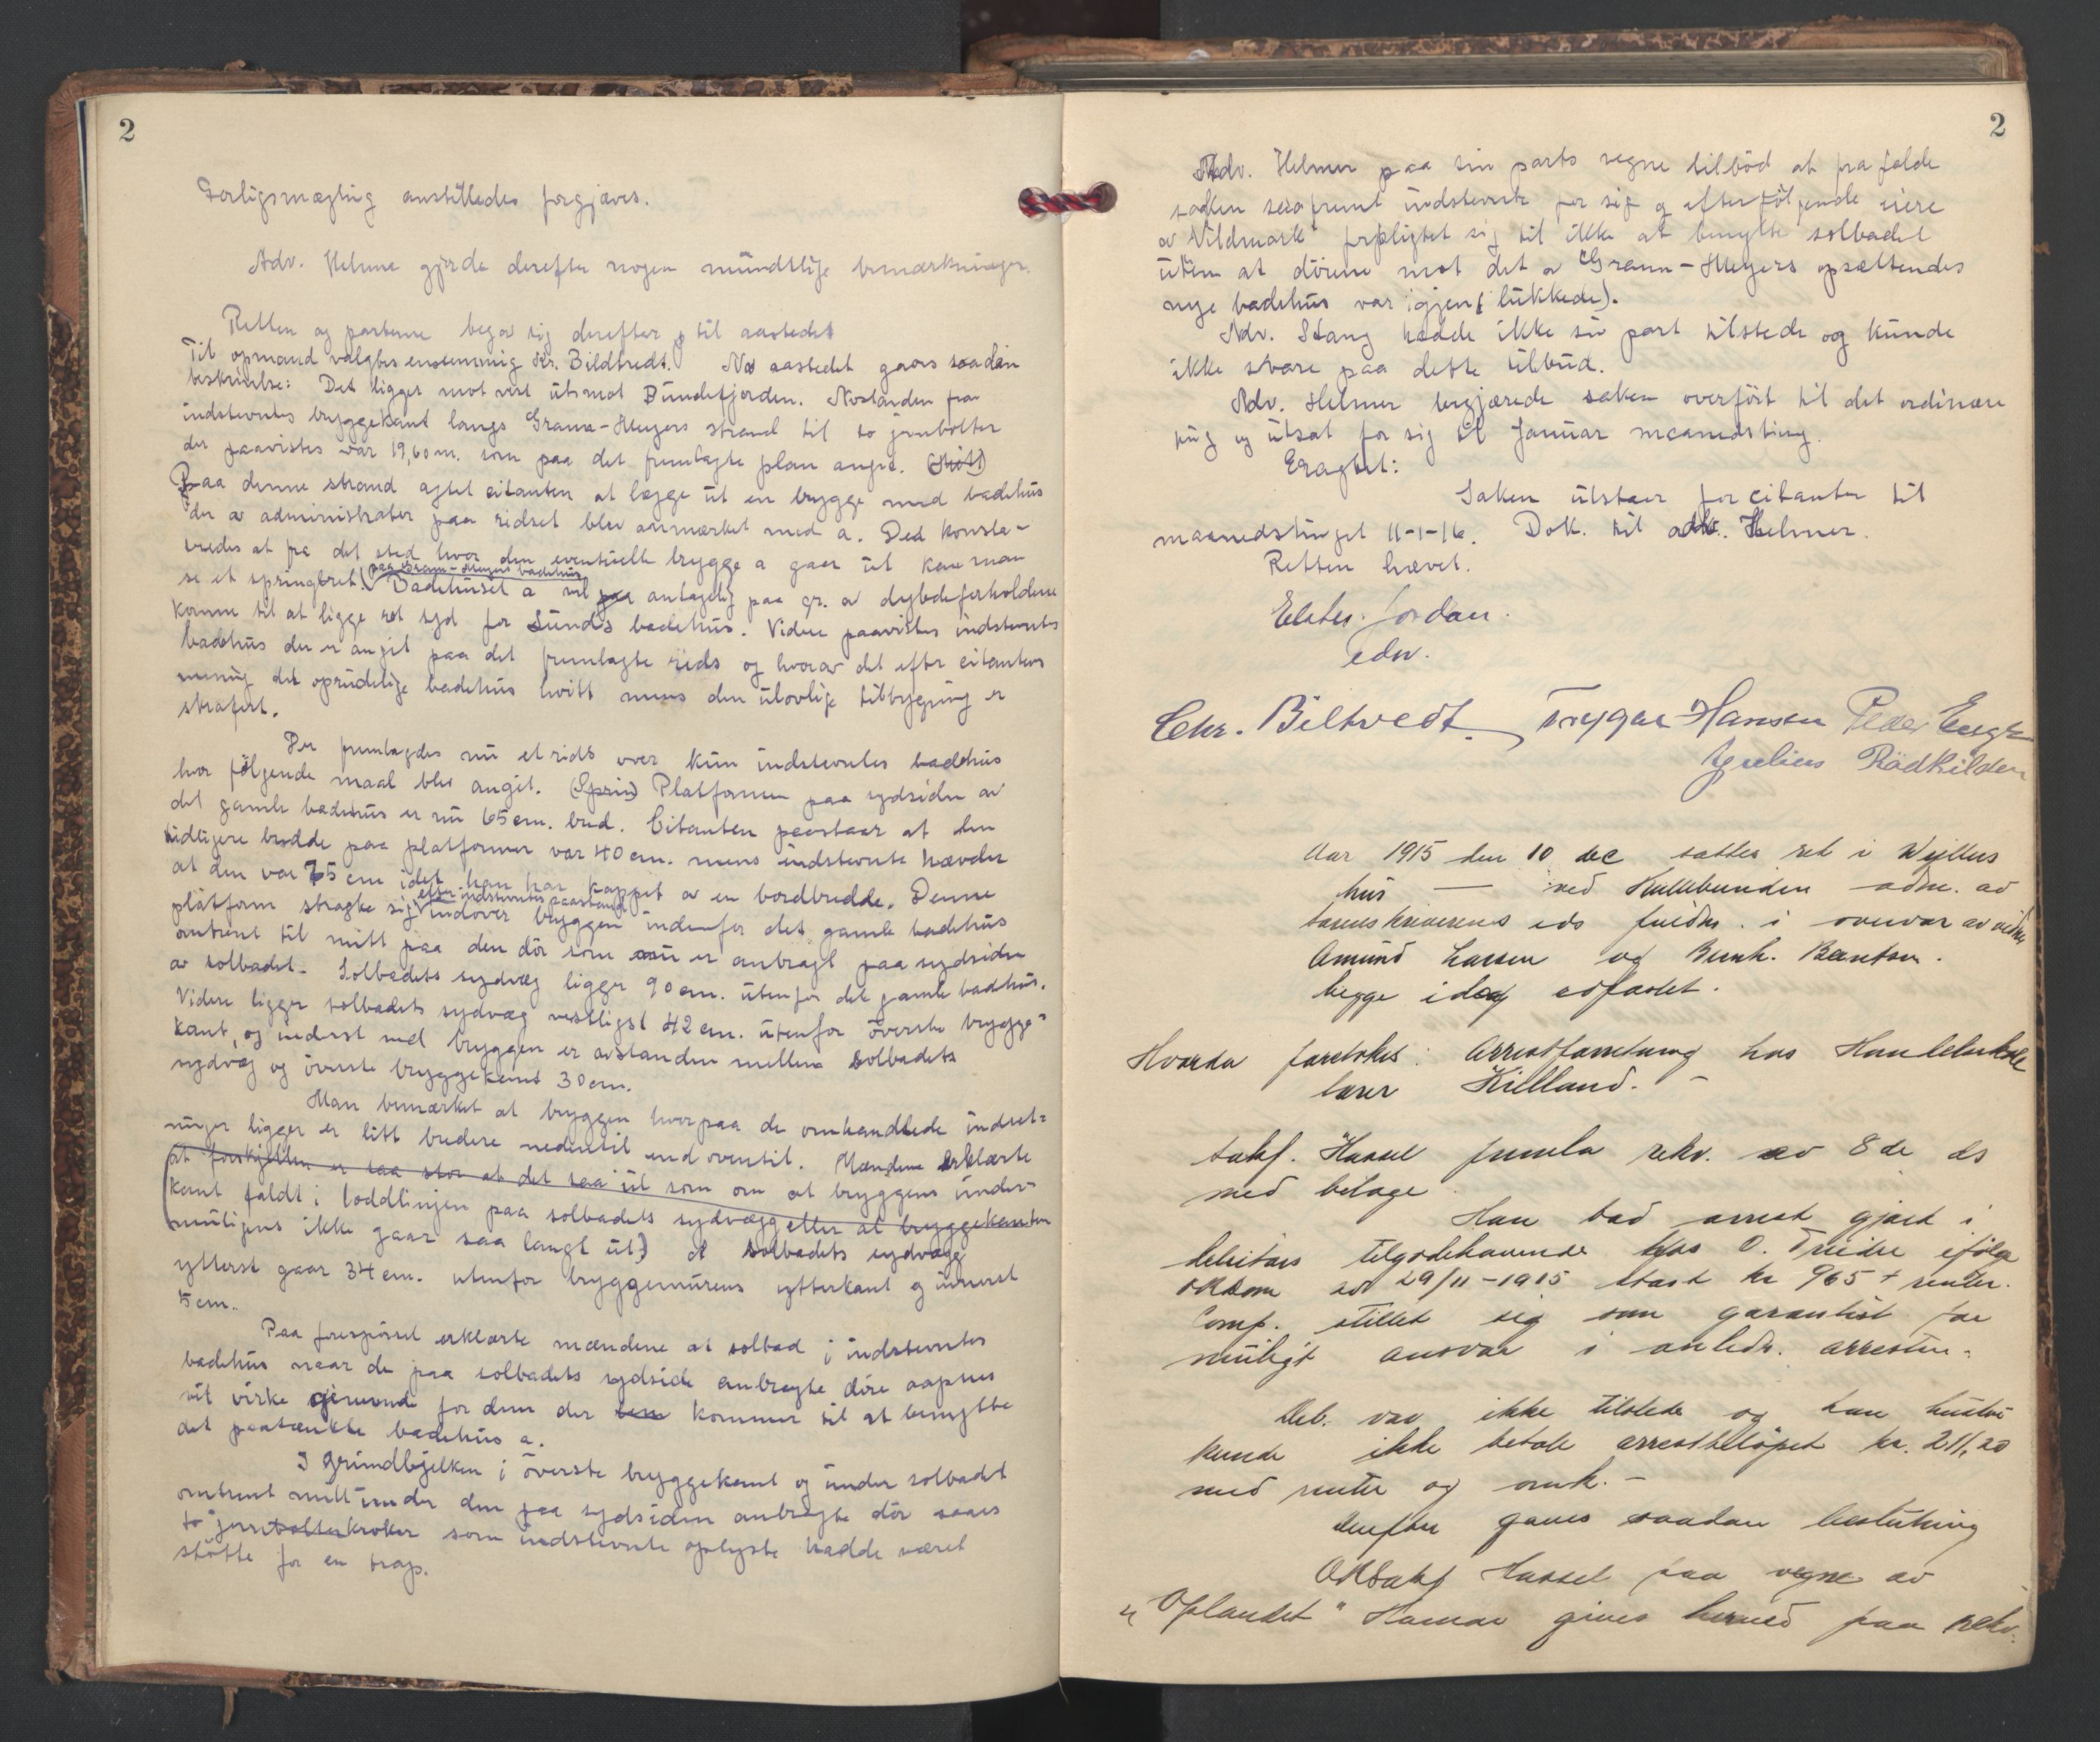 2
Forligsmægling anstilledes forgjæves.
Adv. Helmer gjorde derefter nogen mundtlige bemærkninger.
Retten og parterne begav sig derefter til aastedet
Til opmand valgtes enstemmig Chr. Bildtvedt. Av aastedet gaves saadan
beskrivelse: Det ligger mot vest ut mot Bundefjorden. Avstanden fra
indstevntes bryggekant langs Grann-Meyers strand til to jernbolter
der paavistes var 19,60 m. som paa det fremlagte plan angit.
Paa denne strand agtet citanten at lægge ut en brygge med badehus
der av administrator paa ridset blev anmerket med a. Det konsta-
teredes at fra det sted hvor den eventuelle brygge a gaar ut kan man
se et springbret. paa Grann-Meyers badehus Badehuset a vil antagelig paa gr. av dybdeforholdene
komme til at ligge ret syd for Sunds badehus. Videre paavistes indstevntes
badehus der er angit paa det fremlagte rids og hvorav det efter citantens
mening det oprindelige badehus hvitt mens den ulovlige tilbygning er
strafert.
Der fremlagdes nu et rids over kun indstevntes badehus
hvor følgende maal blev angit. Platformen paa sydsiden av
det gamle badehus er nu 65 cm. bred. Citanten paastaar at den
tidligere bredde paa platformen var 40 cm. mens indstevnte hævder
at den var 75 cm idet han har kappet av en bordbredde. Denne
platform stragte sig efter indstevntes paastand indover bryggen indenfor det gamle badehus
omtrent til mitt paa den dør som nu er anbragt paa sydsiden
av solbadet. Solbadets sydvæg ligger 90 cm. utenfor det gamle badehus.
Videre ligger solbadets sydvæg vestligst 42 cm. utenfor øverste brygge-
kant, og inderst ved bryggen er avstanden mellem solbadets
sydvæg og øverste bryggekant 30 cm.
Man bemærket at bryggen hvorpaa de omhandlede indret-
ninger ligger er litt bredere nedentil end oventil. Mændene erklærte
at forskjellen er saa stor at det saa ut som om at bryggens under-
kant faldt i loddlinjen paa solbadets sydvæg eller at bryggekanten
muligens ikke gaar saa langt ut) at solbadets sydvæg
ytterst gaar 34 cm. utenfor bryggemurens ytterkant og innerst
5 cm.
Paa forespørsel erklærte mændene at solbad i indstevntes
badehus naar de paa solbadets sydside anbragte døre aapnes
vil virke generende for dem der kommer til at benytte
det paatænkte badehus a.
I grundbjelken i øverste bryggekant og under solbadet
omtrent mitt under den paa sydsiden anbragte dør saaes
to jernbolterkroker som indstevnte oplyste hadde været
støtte for en trap.
2
Adv. Helmer paa sin parts vegne tilbød at frafalde
saken saafremt indstevnte for sig og efterfølgende eiere
av "Vildmark" forpligtet sig til ikke at benytte solbadet
uten at dørene mot det av Grann-Meyers opsættendes
nye badehus var igjen (lukkede).
Adv. Stang hadde ikke sin part tilstede og kunde
ikke svare paa dette tilbud.
Adv. Helmer begjærede saken overført til det ordinære
ting og utsat for sig til Januar maanedsting.
Eragtet:
Saken utstaar for citanten til
maanedstinget 11-1-16. Dok. til adv. Helmer.
Retten hævet.
Elster Jordan.
edv.
Chr. Biltvedt. Trygve Hansen Peder Enge
Rödkilden
Aar 1915 den 10 dec sattes ret i Wejllus
hus — ved Kullebunden adm. av
sorenskriverens eds fuldm. i overvær av vidner
Amund Larsen og Bernh. Berntsen.
begge idag edfæstet.
Hvorda foretokes: Arrestforretning hos Handelsskole
lærer Killand. -
Saksf. Hassel fremla rekv. av 8de ds
med bilage.
Han bad arrest gjort i
debitors tilgodehavende hos O. Treider ifølge
OR dom av 29/11-1915 stort kr 965 + renter.
Comp. stillet sig som garantist for
muligt ansvar i anledn. arresten.
Deb. var ikke tilstede og han hustru
kunde ikke betale arrestbeløpet kr. 211,20
med renter og omk. -
Derefter gaves saadan beslutning
ORSakf Hassel paa vegne av
"Oplandet" Hamar gives herved paa rekv.